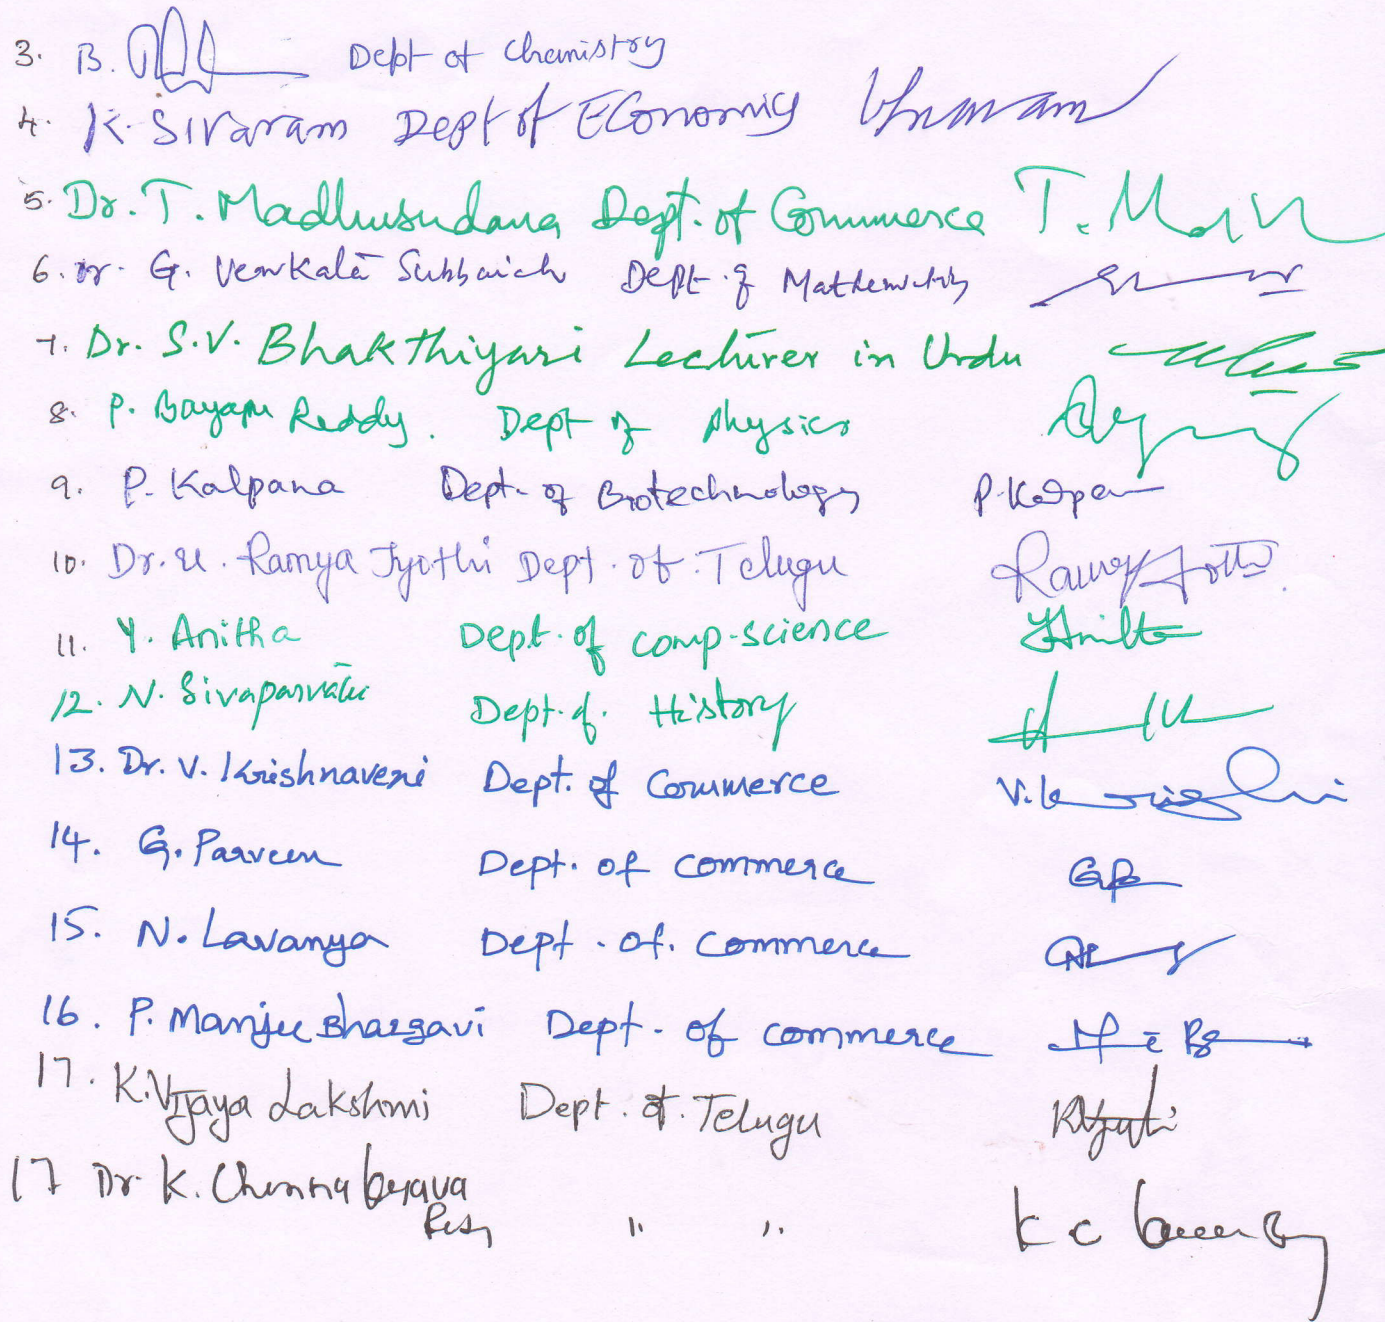 3. B. Dept of Chemistry
4. K. Sivaram Dept of Economics
5. Dr. T. Madhusudana Dept. of Commerce T. M
6. Dr. G. Venkata Subbaiah Dept. of Mathematics
7. Dr. S.V. Bhakthiyari Lecturer in Urdu
8. P. Bayapu Reddy. Dept of physics
9. P. Kalpana Dept. of Biotechnology P. Kalpan
10. Dr. U. Ramya Jyothi Dept. of. Telugu
11. Y. Anitha Dept. of comp-science YAnitha
12. N. Sivaparvathi Dept. of. History
13. Dr. V. Krishnaveni Dept. of Commerce
14. G. Parveen Dept. of commerce
15. N. Lavanya Dept. of. Commerce
16. P. Manjee Bhargavi Dept. of commerce
17. K. Vijaya Lakshmi Dept. of. Telugu
17 Dr. K. Chenna Besava
Reddy " "